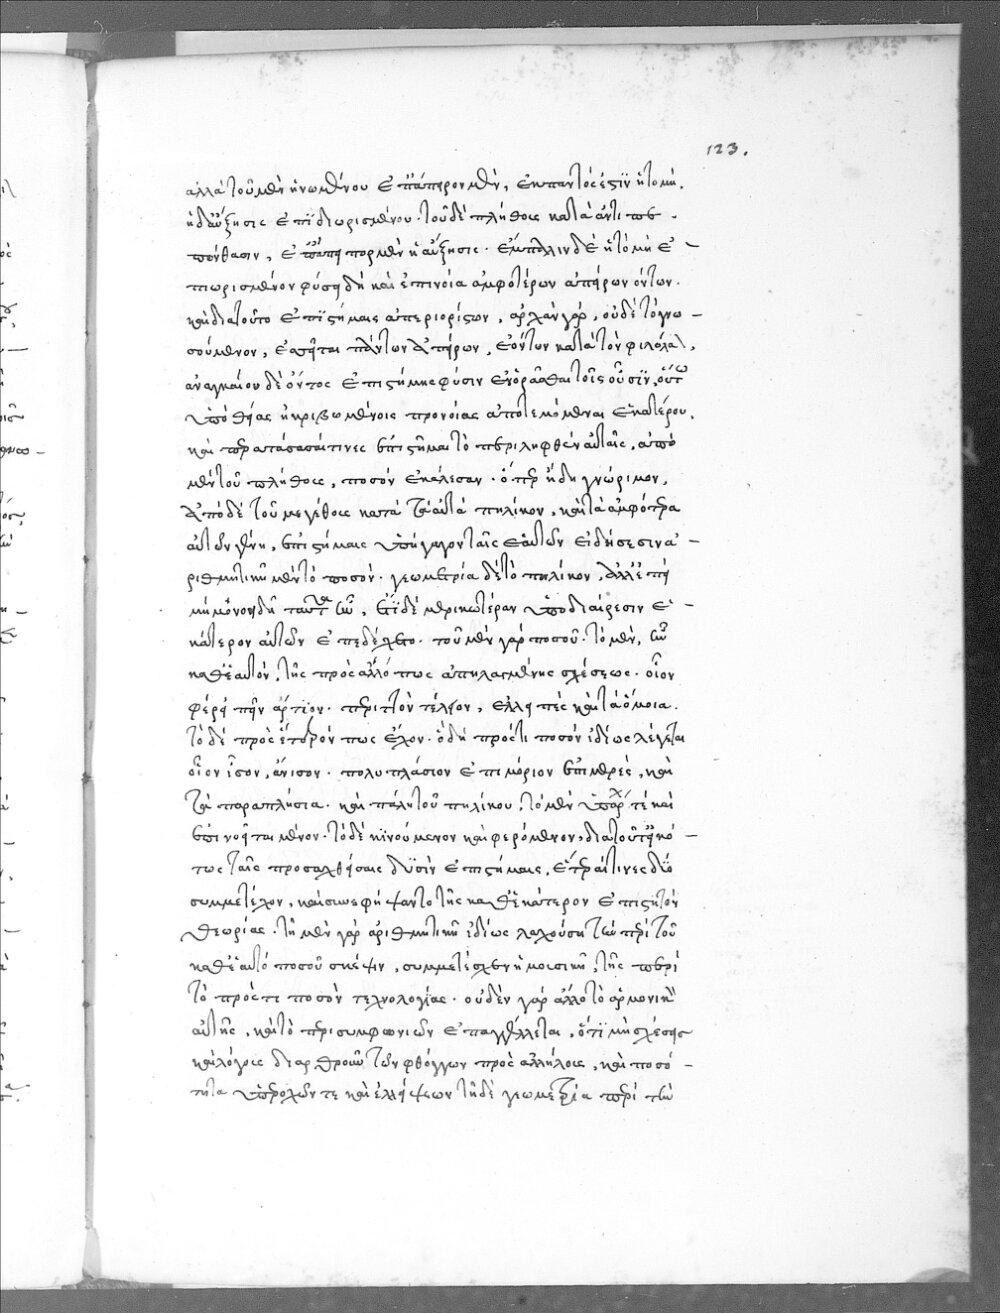 123.
ἀλλὰ τοῦ μὲν ἡνωμένου ἐπ' ἄπειρον μὲν, ἐκ παντός ἐστιν ἡ τομή.
ἡ δ' αὔξησις ἐπὶ διωρισμένου. τοῦ δὲ πλήθους κατὰ ἀντιπε-
πόνθασιν, ἐπ' ἄπειρον μὲν ἡ αὔξησις. ἔμπαλιν δὲ ἡ τομὴ ἐ-
πιωρισμένον φύσει δὴ καὶ ἐπινοία ἀμφοτέρων ἀπείρων ὄντων.
καὶ διὰ τοῦτο ἐπιστήμαις ἀπεριορίστων, ἀρχὰν γὰρ, οὐδὲ τὸ γνω-
σούμενον, ἐσεῖται πάντων ἀπείρων, ἐόντων κατὰ τὸν φιλόλαον,
ἀναγκαίου δὲ ὄντος ἐπιστήμης φύσιν ἐνορᾶσθαι τοῖς οὖσιν, οὕτω
ὑπὸ θείας ἠκριβωμένοις προνοίας ἀποτεμόμεναι ἑκατέρου,
καὶ περατώσασαί τινες ἐπιστῆμαι τὸ περιληφθὲν αὐταῖς, ἀπὸ
μὲν τοῦ πλήθους, ποσὸν ἐκάλεσαν. ὅπερ ἤδη γνώριμον,
ἀπὸ δὲ τοῦ μεγέθους κατὰ τὰ αὐτὰ πηλίκον, καὶ τὰ ἀμφότερα
αὐτῶν γένη, ἐπιστήμαις ὑπήγαγον ταῖς ἑαυτῶν εἰδήσεσιν ἀ-
ριθμητικῆ μὲν τὸ ποσὸν. γεωμετρία δὲ τὸ πηλίκον, ἀλλ' ἐπεὶ
μὴ μόνον δὴ ταῦτα ἦν, ἔτι δὲ μερικωτέραν ὑποδιαίρεσιν ἑ-
κάτερον αὐτῶν ἐπεδέχετο. τοῦ μὲν γὰρ ποσοῦ. τὸ μὲν, ἦν
καθ' ἑαυτόν, τῆς πρὸς ἄλλό πως ἀπηλλαγμένης σχέσεως. οἷον
φέρε εἰπεῖν ἄρτιον. περιττὸν τέλειον, ἐλλιπὲς καὶ τὰ ὅμοια.
τὸ δὲ πρὸς ἕτερόν πως ἔχον. ὃ δὴ πρός τι ποσὸν ἰδίως λέγεται
οἷον ἴσον, ἄνισον. πολυπλάσιον ἐπιμόριον ἐπιμερές, καὶ
τὰ παραπλήσια. καὶ πάλι τοῦ πηλίκου, τὸ μὲν ὑπῆρχε τε καὶ
ἐπινοεῖται μένον. τὸ δὲ κινούμενον καὶ φερόμενον, διὰ τοῦτ' εἰκό-
τως ταῖς προσαχθείσαις δυσὶν ἐπιστήμαις, ἕτεραί τινες δύο
συμμετέχον, καὶ συνεφήψαντο τῆς καθ' ἑκάτερον ἐπιστητὸν
θεωρίας. τῆ μὲν γὰρ ἀριθμητικῆ ἰδίως λαχούση τῶν περὶ τοῦ
καθ' ἑαυτὸ ποσοῦ σκέψιν, συμμετέσχεν ἡ μουσικὴ, τῆς περὶ
τὸ πρός τι ποσὸν τεχνολογίας. οὐδὲν γὰρ ἄλλο τὸ ἁρμονικὸν
αὐτῆς, καὶ τὸ περὶ συμφωνιῶν ἐπαγγέλλεται, ὅτι μὴ σχέσεις
καὶ λόγους διαρθροῦν τῶν φθόγγων πρὸς ἀλλήλους, καὶ ποσό-
τητα ὑπεροχῶν τε καὶ ἐλλείψεων τῆ δὲ γεωμετρία περὶ τῶν